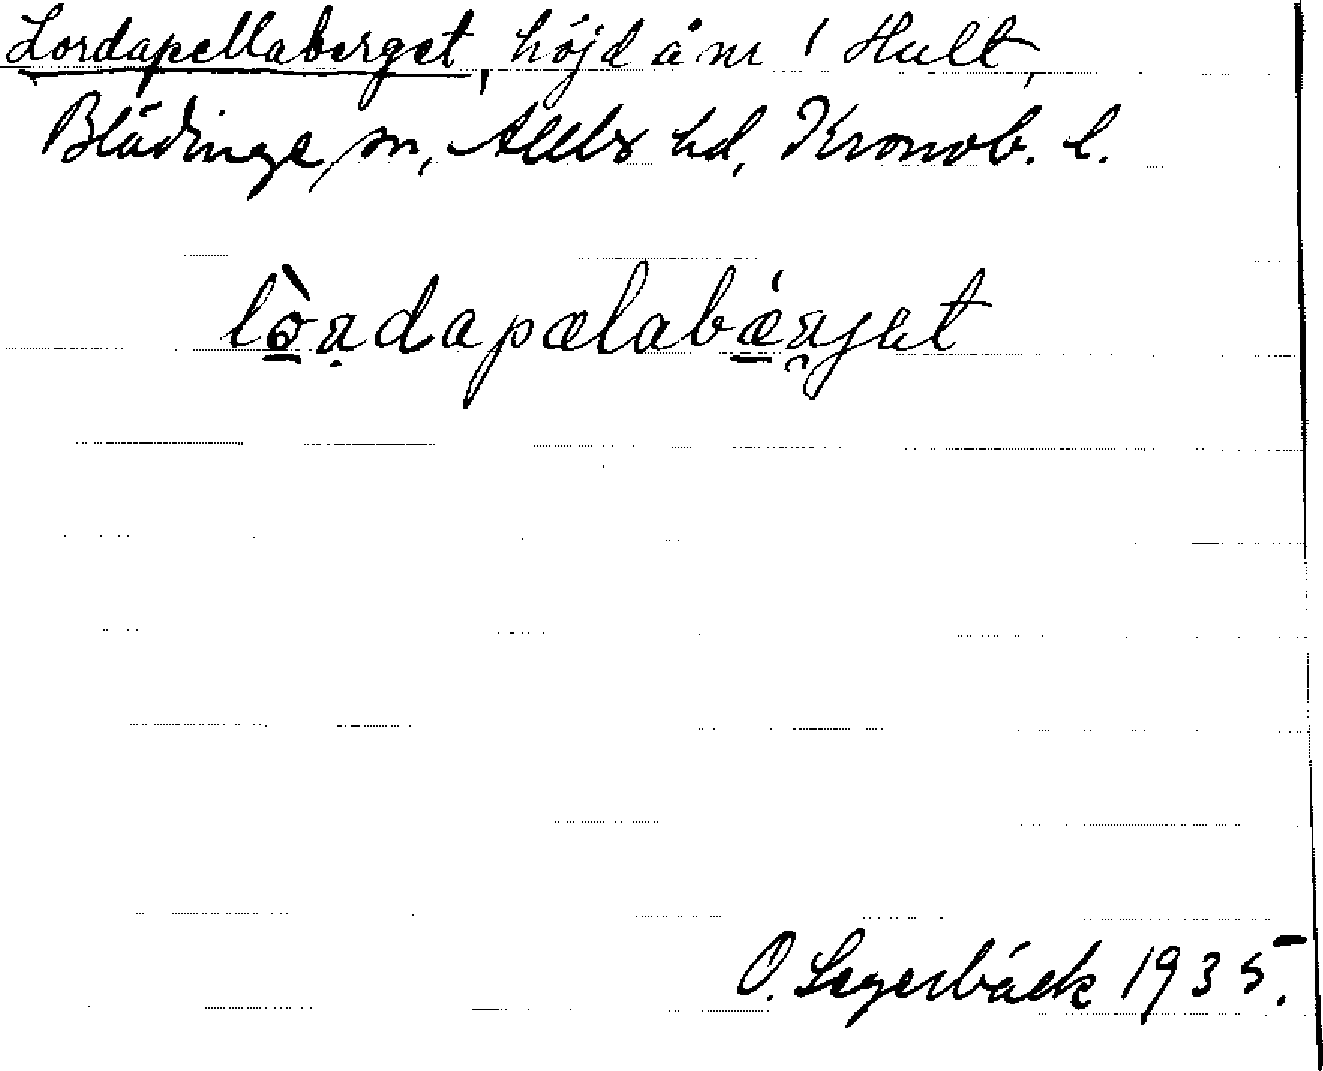 Lordapellaberget, höjd å nr 1 Hult,
Blädinge sn, Allbo hd, Kronob. l.
lòrdapælabǽrjet
O. Lagerbäck 1935.